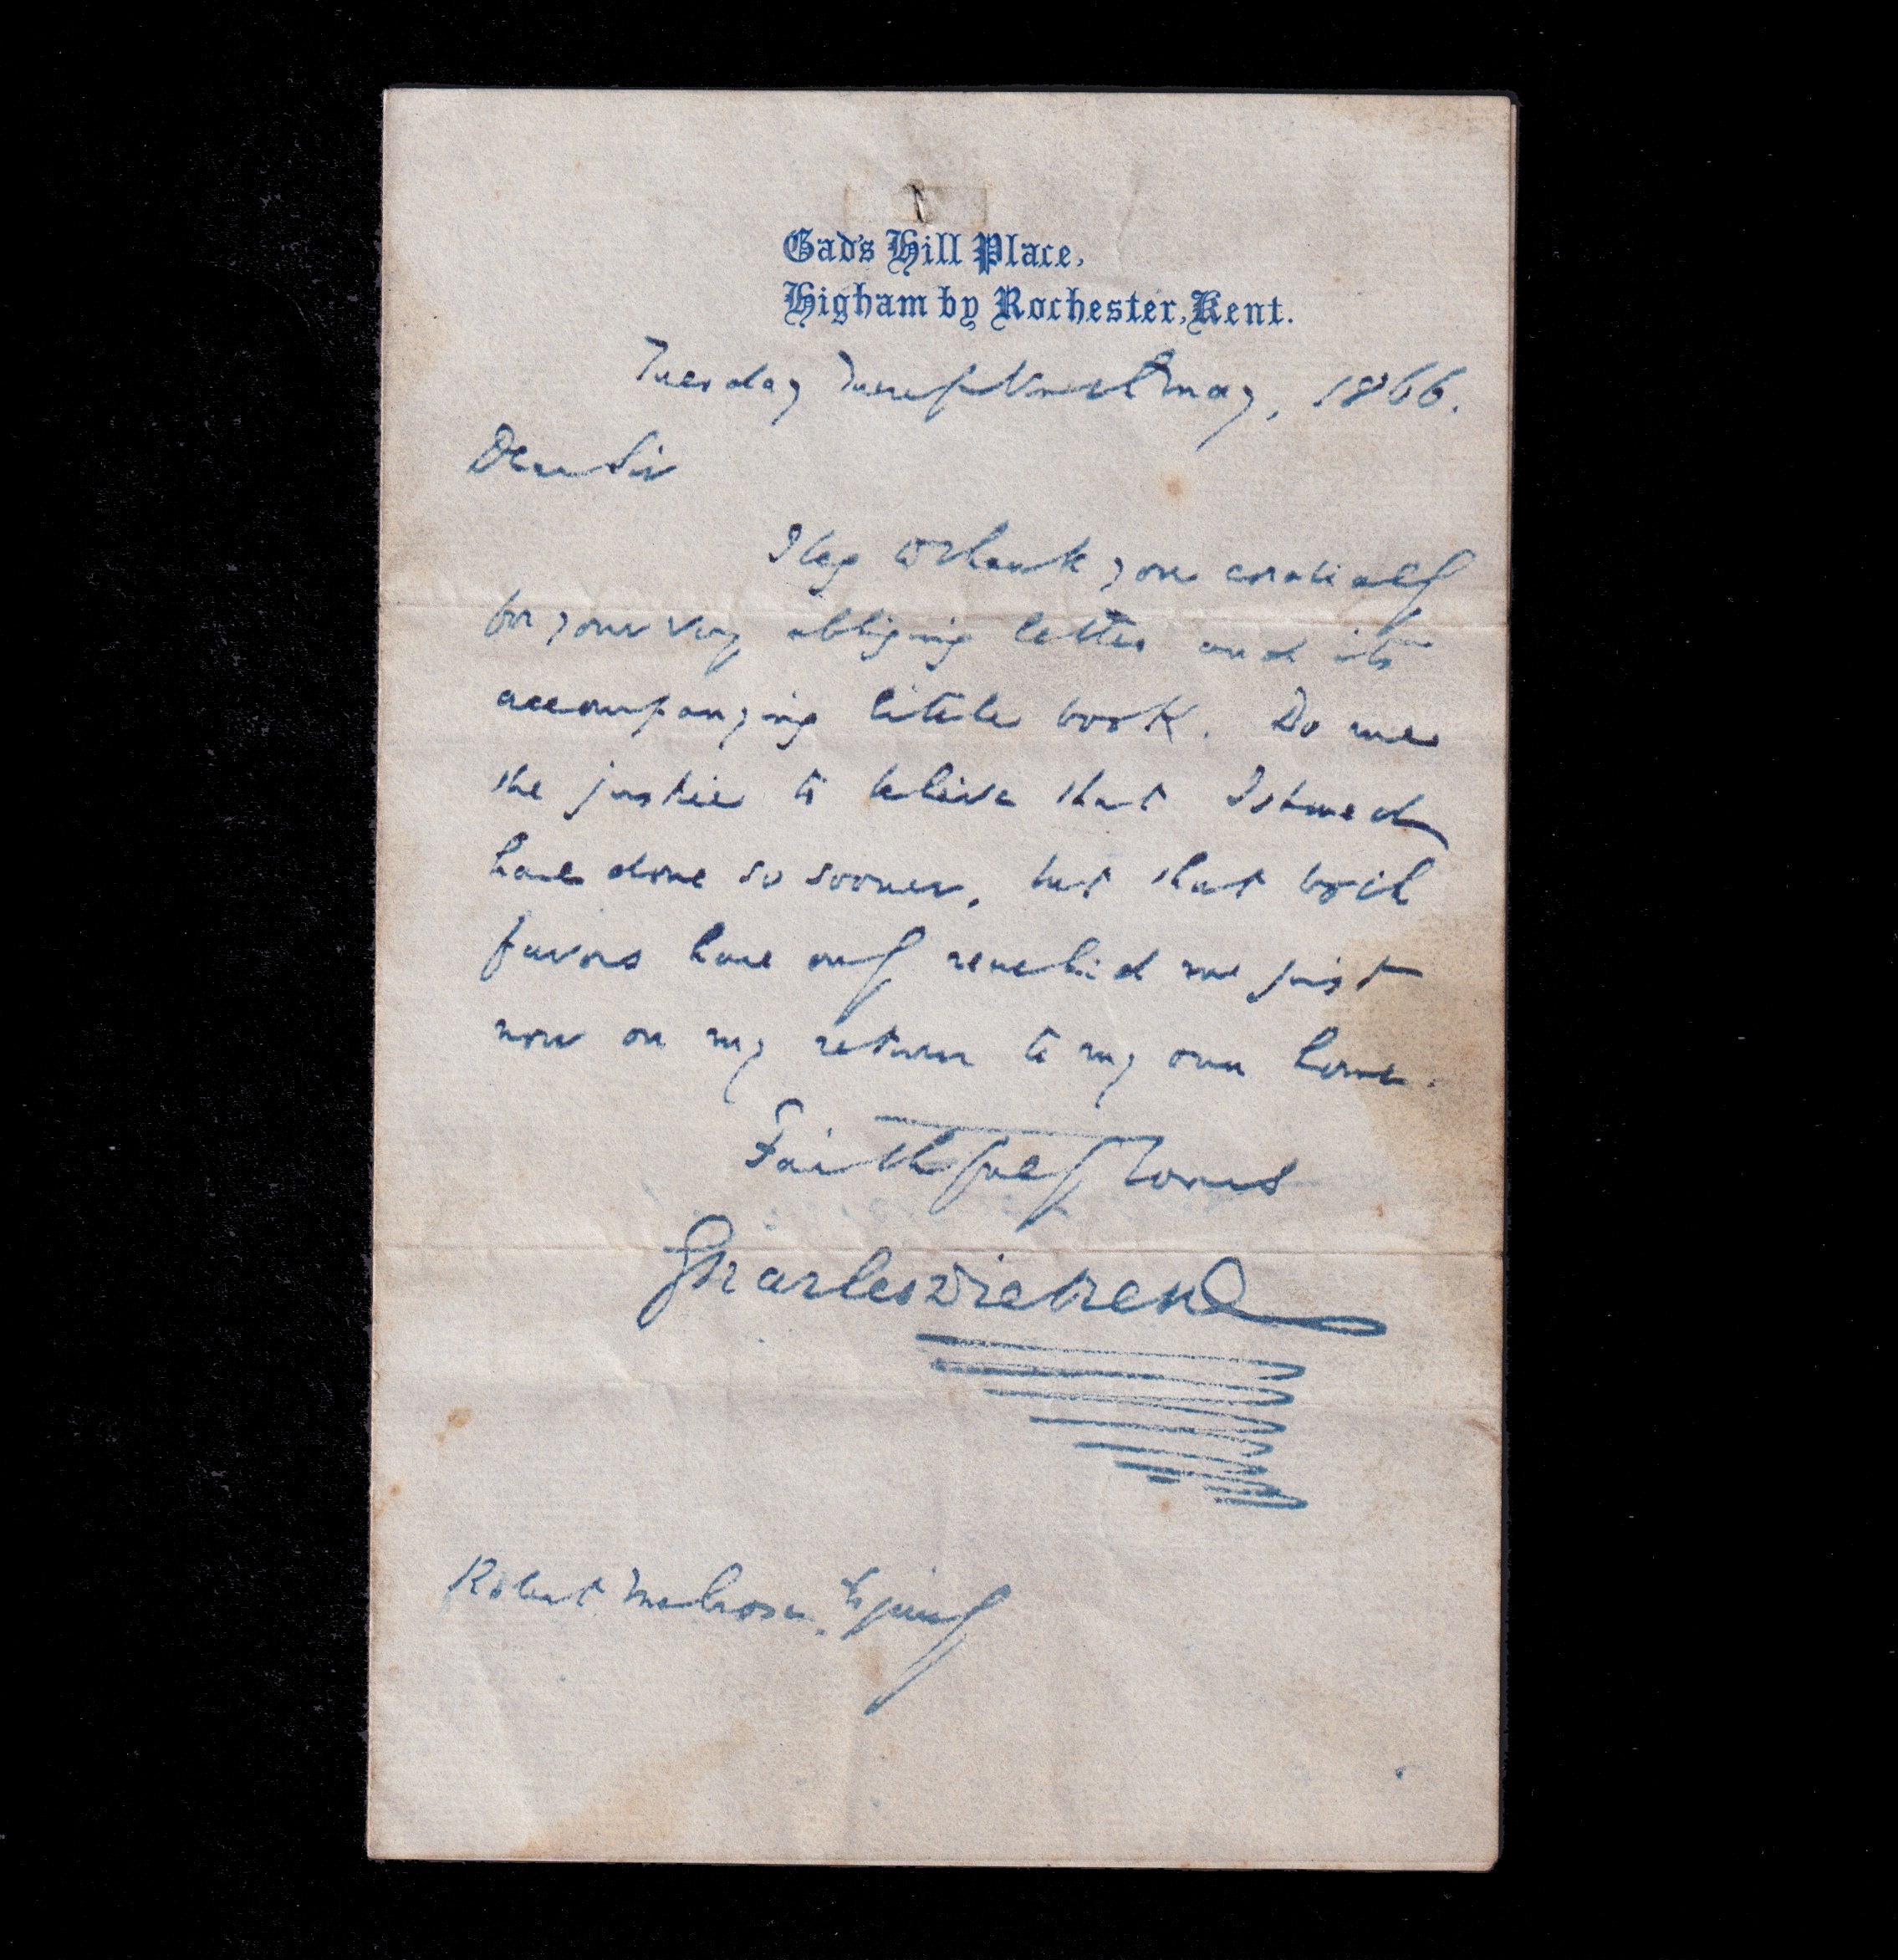 Gad's Hill Place,
Higham by Rochester, Kent.
Tuesday Twenty Ninth May, 1866.
Dear Sir
I beg to thank you cordially
for your very obliging letter and its
accompanying little book. Do me
the justice to believe that I should
have done so sooner, but that both
favors have only reached me just
now on my return to my own home.
Faithfully Yours
Charles Dickens
Robert Melrose. Esquire